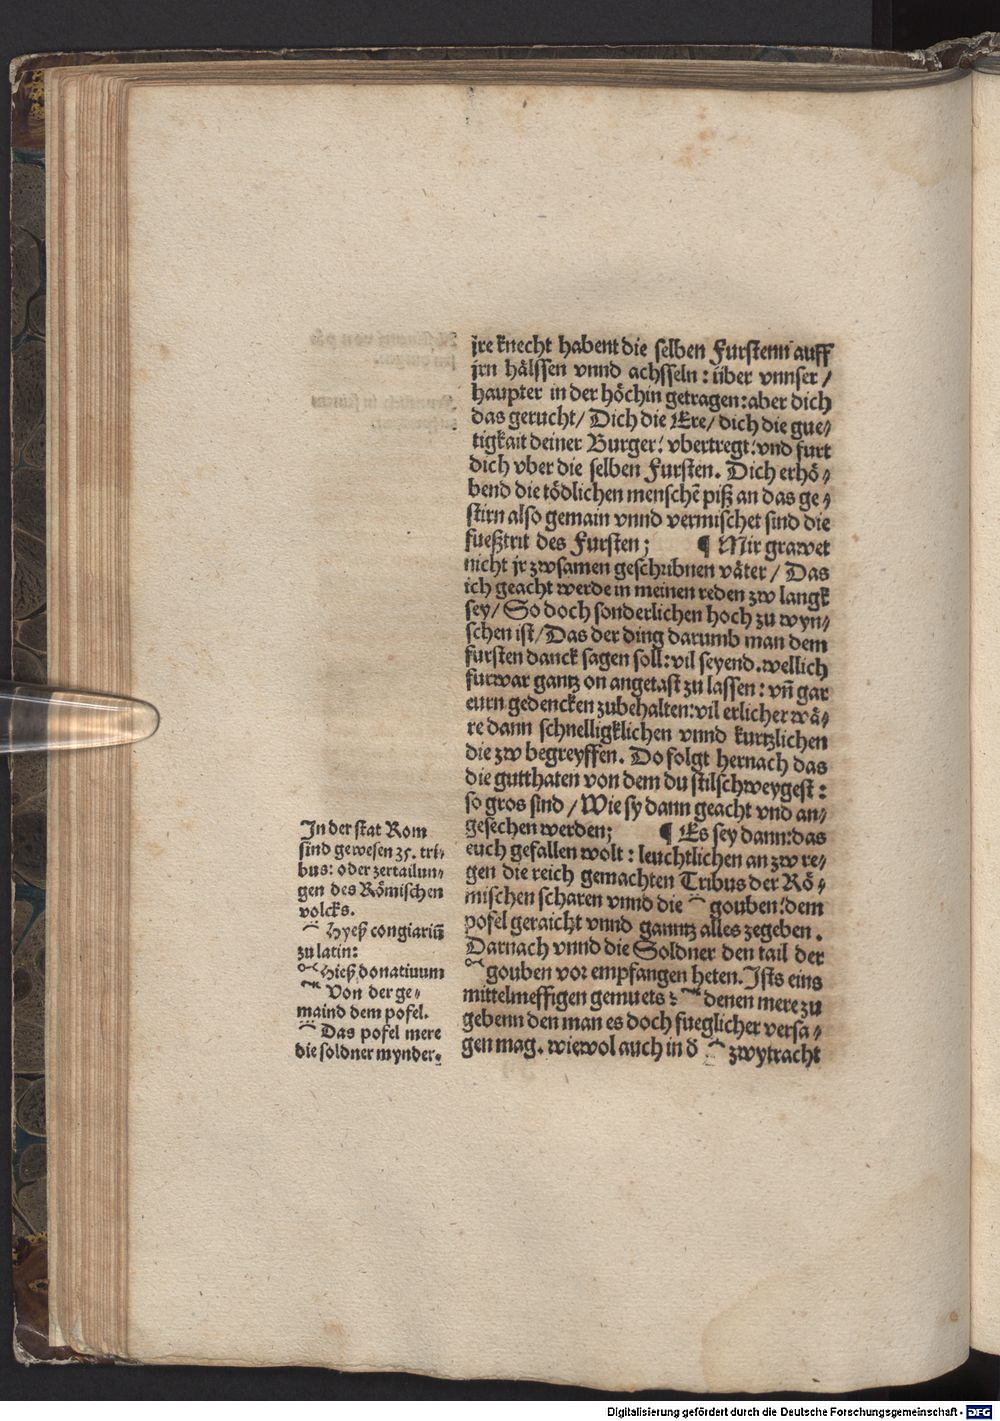 jre knecht habent die selben Furstenn auff
jrn hälssen vnnd achsseln : über vnnser /
haupter in der höchin getragen : aber dich
das gerucht / Dich die Ere / dich die gue⸗
tigkait deiner Burger : vbertregt : vnd furt
dich vber die selben Fursten . Dich erhö⸗
bend die tödlichen menschē piß an das ge⸗
stirn also gemain vnnd vermischet sind die
fueßtrit des Fursten ; ¶ Mir grawet
nicht jr zwsamen geschribnen väter / Das
ich geacht werde in meinen reden zw langk
sey / So doch sonderlichen hoch zu wyn⸗
schen ist / Das der ding darumb man dem
fursten danck sagen soll : vil seyend . wellich
furwar gantz on angetast zu lassen : vn̄ gar
eurn gedencken zubehalten : vil erlicher wä⸗
re dann schnelligklichen vnnd kurtzlichen
die zw begreyffen . Do folgt hernach das
die gutthaten von dem du stilschweygest :
so gros sind / Wie sy dann geacht vnd an⸗
gesechen werden ; ¶ Es sey dann : das
euch gefallen wolt : leuchtlichen an zw re⸗
gen die reich gemachten Tribus der Rö⸗
mischen scharen vnnd die gouben : dem
pofel geraicht vnnd ganntz alles zegeben .
Darnach vnnd die Soldner den tail der
gouben vor empfangen heten . Ists eins
mittelmessigen gemuets : denen mere zu
gebenn den man es doch fueglicher versa⸗
gen mag . wiewol auch in d̄ zwytracht
In der stat Rom
sind gewesen 35 . tri⸗
bus : oder zertailun⸗
gen des Römischen
volcks .
Hyeß congiariū
zu latin :
Hieß donatiuum
Von der ge⸗
maind dem pofel .
Das pofel mere
die soldner mynder .
Digitalisierung gefördert durch die Deutsche Forschungsgemeinschaft - DFG